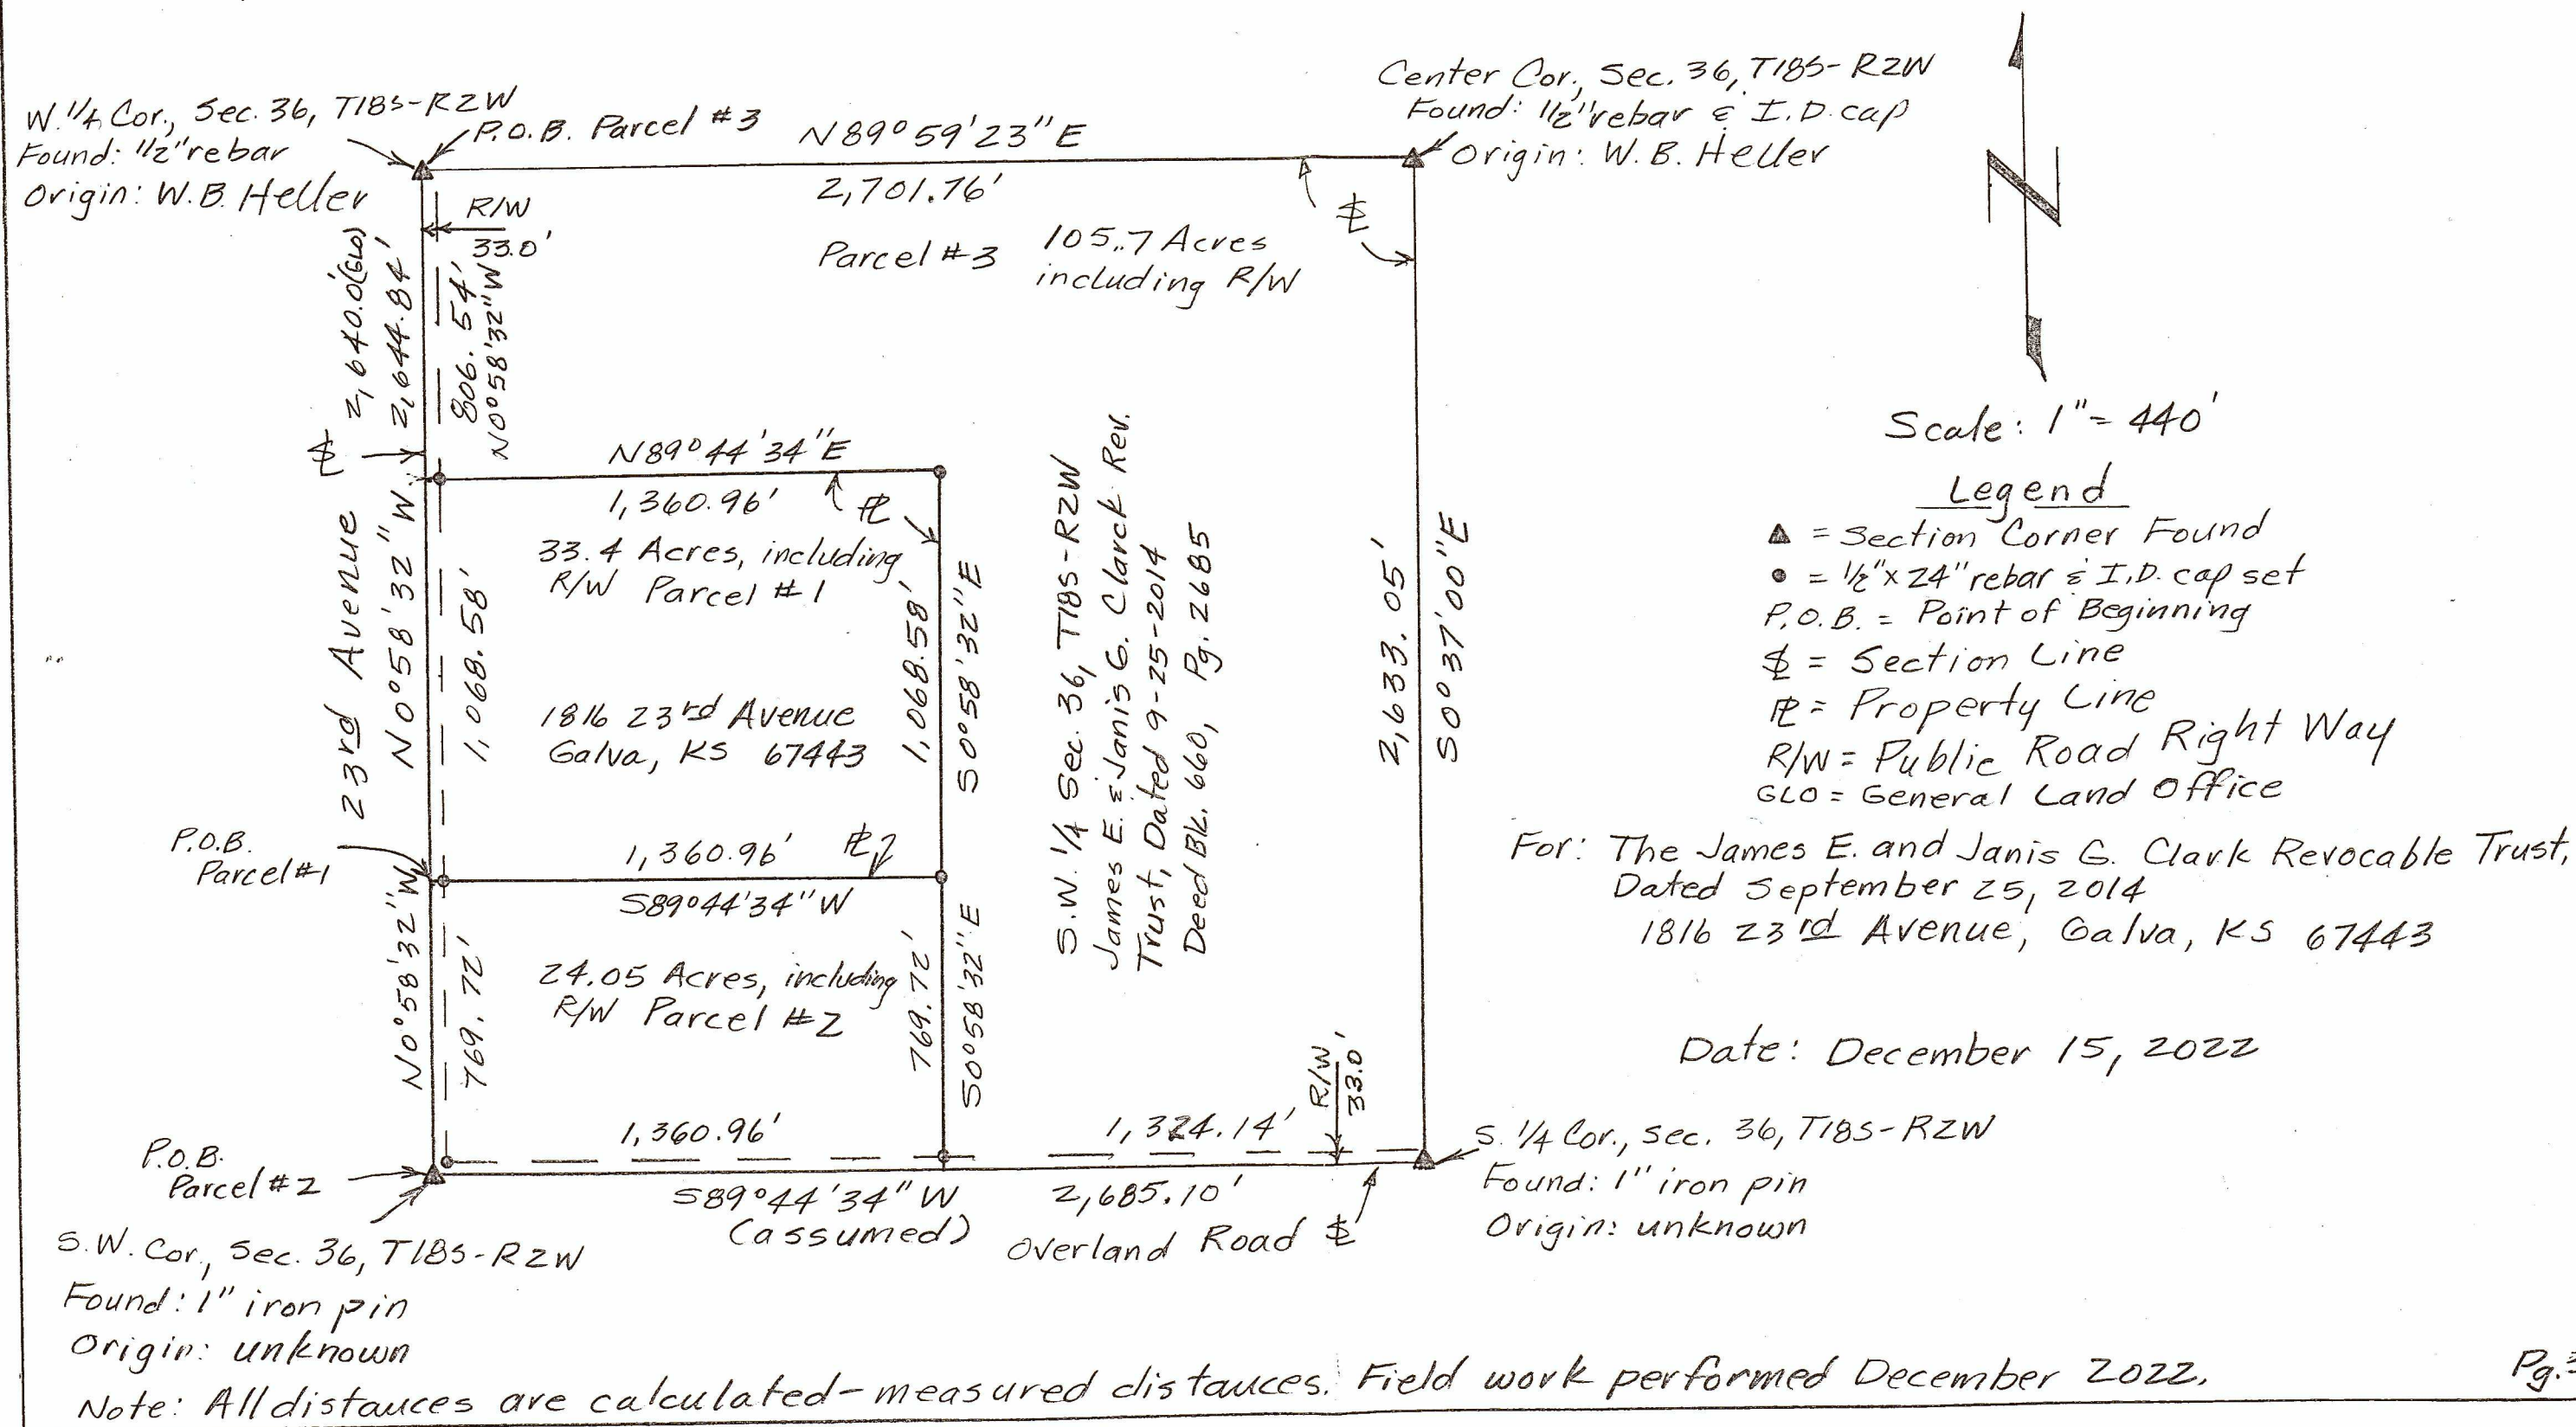 W. 1/4 Cor., Sec. 36, T18S-R2W
Found: 1/2" rebar
Origin: W.B. Heller
P.O.B. Parcel #3
N89°59'23"E
2,701.76'
Center Cor., Sec. 36, T18S-R2W
Found: 1/2" rebar & I.D. cap
Origin: W. B. Heller
R/W
33.0'
Parcel #3
105.7 Acres
including R/W
2,640.0'(GLO)
2,644.84'
806.54'
N0°58'32"W
N89°44'34"E
1,360.96'
33.4 Acres, including
R/W Parcel #1
1816 23rd Avenue
Galva, KS 67443
23rd Avenue
N0°58'32"W
1,068.58'
1,068.58'
S0°58'32"E
S.W. 1/4 Sec. 36, T18S-R2W
James E. & Janis G. Clarck Rev.
Trust, Dated 9-25-2014
Deed Bk. 660, Pg. 2685
2,633.05'
S0°37'00"E
P.O.B.
Parcel #1
1,360.96'
S89°44'34"W
24.05 Acres, including
R/W Parcel #2
N0°58'32"W
769.72'
769.72'
S0°58'32"E
1,360.96'
1,324.14'
R/W
33.0'
P.O.B.
Parcel #2
S89°44'34"W
(assumed)
2,685.10'
Overland Road
S. 1/4 Cor., Sec. 36, T18S-R2W
Found: 1" iron pin
Origin: unknown
S.W. Cor., Sec. 36, T18S-R2W
Found: 1" iron pin
Origin: unknown
N
Scale: 1" = 440'
Legend
▲ = Section Corner Found
● = 1/2" x 24" rebar & I.D. cap set
P.O.B. = Point of Beginning
= Section Line
= Property Line
R/W = Public Road Right Way
GLO = General Land Office
For: The James E. and Janis G. Clark Revocable Trust,
Dated September 25, 2014
1816 23rd Avenue, Galva, KS 67443
Date: December 15, 2022
Note: All distances are calculated-measured distances. Field work performed December 2022.
Pg.